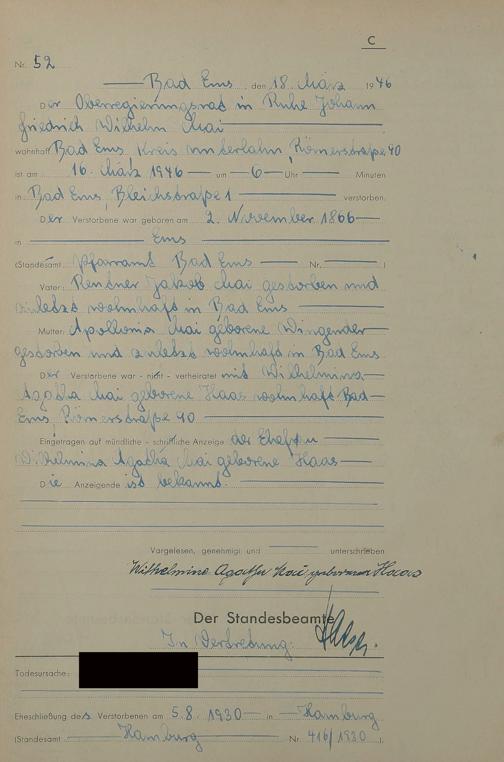 C
Nr. 52
Bad Ems, den 18. März 1946
Der Oberregierungsrat in Ruhe Johann
Friedrich Wilhelm Mai
wohnhaft Bad Ems, Kreis Unterlahn, Römerstraße 40
ist am 16. März 1946 um 6 Uhr Minuten
in Bad Ems, Bleichstraße 1 verstorben.
Der Verstorbene war geboren am 2. November 1866
in Ems
(Standesamt Pfarramt Bad Ems Nr. )
Vater: Rentner Jakob Mai gestorben und
zuletzt wohnhaft in Bad Ems
Mutter: Apollonia Mai geborene Wingender
gestorben und zuletzt wohnhaft in Bad Ems
Der Verstorbene war - nicht - verheiratet mit Wilhelmina
Agatha Mai geborene Haas wohnhaft Bad
Ems, Römerstraße 40
Eingetragen auf mündliche - schriftliche Anzeige der Ehefrau
Wilhelmina Agatha Mai geborene Haas
Die Anzeigende ist bekannt.
Vorgelesen, genehmigt und unterschrieben
Wilhelmine Agathe Mai, geborenen Haas
Der Standesbeamte
In Vertretung:
Todesursache:
Eheschließung des Verstorbenen am 5.8.1930 in Hamburg
(Standesamt Hamburg Nr. 416/1930 ).